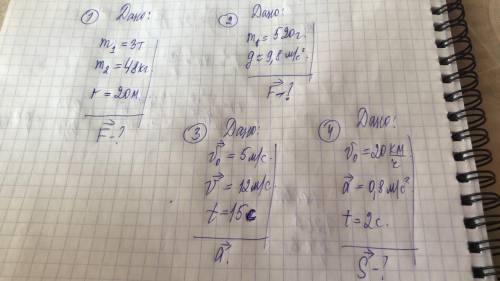 ① Дано:
m₁ = 3т
m₂ = 48кг.
r = 20м.
F⃗-?
② Дано:
m₁ = 520г.
g = 9,8 м/с².
Fт-?
③ Дано:
v⃗₀ = 5м/с.
v⃗ = 12м/с.
t = 15с
a⃗?
④ Дано:
v₀ = 20 км/ч
a⃗ = 0,8м/с²
t = 2с.
S⃗-?